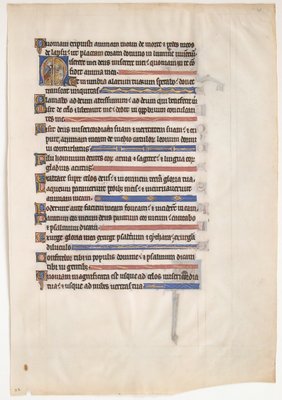 Quoniam eripuisti animam meam de morte et pedes meos
de lapsu: ut placeam coram domino in lumine viventium
Miserere mei deus miserere mei: quoniam in te con
fidit anima mea
Et in umbra alarum tuarum sperabo: donec
transeat iniquitas
Clamabo ad deum altissimum: ad deum qui benefecit m
Misit de celo et liberavit me: dedit in opprobrium conculcan
tes me
Misit deus misericordiam suam et veritatem suam: et eri
puit animam meam de medio catulorum leonum dormivi
conturbatus
Filii hominum dentes eor arma et sagitte: et lingua eor
gladius acutus
Exaltare super celos deus: et in omnem terra gloria tua
Laqueum paraverunt pedibus meis: et incurvaverunt
animam meam
Foderunt ante faciem meam foveam: et inciderunt in eam
Paratum cor meum deus paratum cor meum: cantabo
et psalmum dicam
Exurge gloria mea exurge psalterium et cythara: exurgam
diluculo
Confitebor tibi in populis domine: et psalmum dicam
tibi in gentibus
Quoniam magnificata est usque ad celos misericordia
tua: et usque ad nubes veritas tua